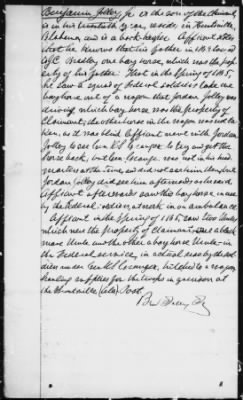 Benjamin Jolley, Jr. is the son of the claimant
is in his twentieth year, resides in Huntsville,
Alabama and is a book-keeper. Affiant states
that he knows that his father in 1864 owned
one bay horse, which was the prop-
erty of his father. That in the Spring of 1865,
he saw a squad of Federal soldiers take one
bay horse out of a wagon that Jordan Jolley was
driving which bay horse was the property of
Claimant, the other horse in the wagon was not ta-
ken, as it was blind. Affiant went with Jordan
Jolley to see to try and get the
horse back, but Gen. was not in his head
quarters at the time and did not see him
Jordan Jolley did see him afterwards
Affiant afterwards saw this bay horse, in use
by the Federal soldiers at work in an ambulance.
Affiant in the Spring of 1865, saw two Mules
which were the property of Claimant, one a black
mare Mule and the other a bay horse Mule in
the Federal service, in actual use by the sol-
diers under hitched to a wagon
hauling supplies for the troops in garrison at
the Huntsville (Ala) Post.